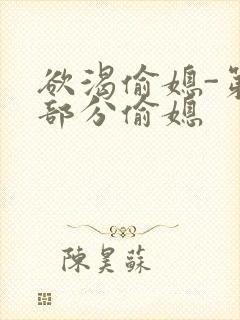 欲渴偷媳-第
部分偷媳
陳昊蘇